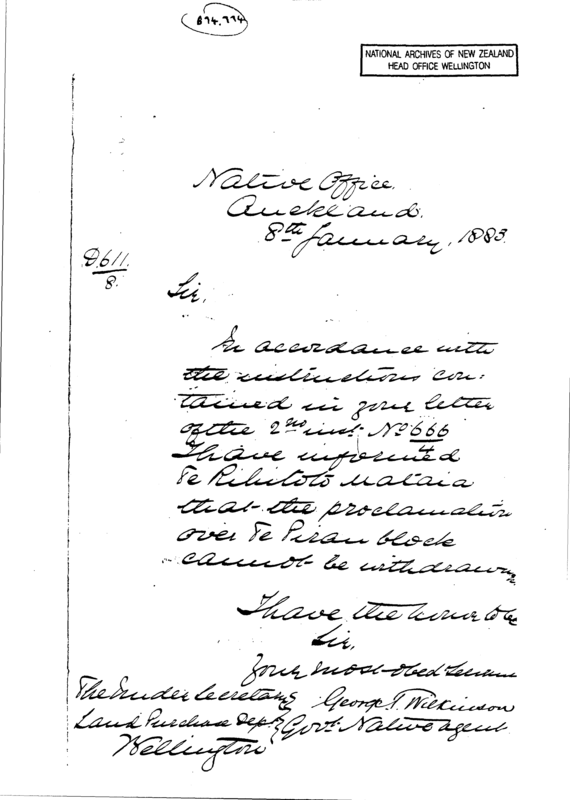 874.774
NATIONAL ARCHIVES OF NEW ZEALAND
HEAD OFFICE WELLINGTON
Native Office.
Auckland.
8th January, 1883.
D.611/8.
Sir,
In accordance with
the instructions con:
tained in your letter
of the 2nd inst. No 666/4
I have informed
Te Rihitoto Mataia
that the proclamation
over Te Pirau block
cannot be withdrawn
I have the honor to be
Sir,
Your most obed Servant
The Under Secretary George T. Wilkinson
Land Purchase Dept. Govt. Native agent
Wellington